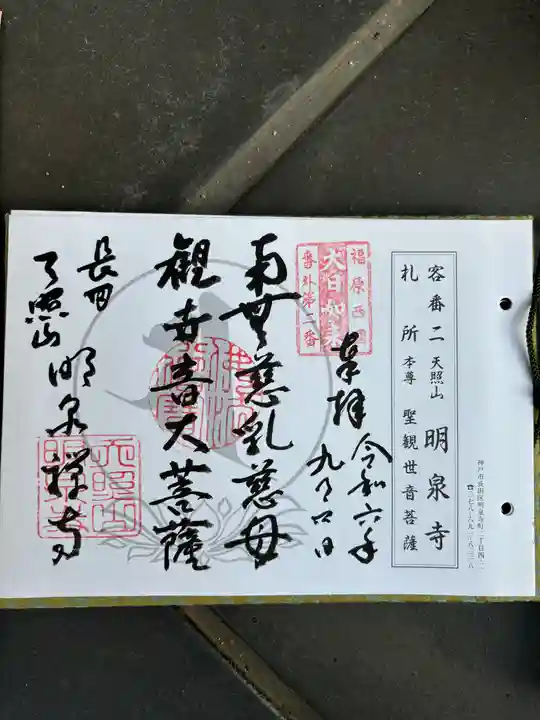 客番二 天照山 明泉寺
札所 本尊 聖観世音菩薩
神戸市長田区明泉寺町二丁目四-二
奉拝 令和六年
九月 日
福原西国
大日如来
番外第二番
南無慈乳慈母
観世音大菩薩
長田
天照山 明泉禅寺